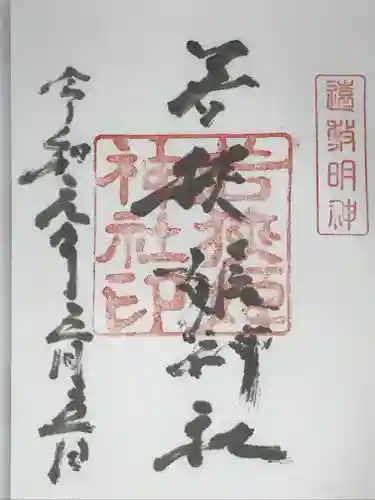 遠敷明神
若狭姫神社
若狭姫神社印
令和元年五月五日